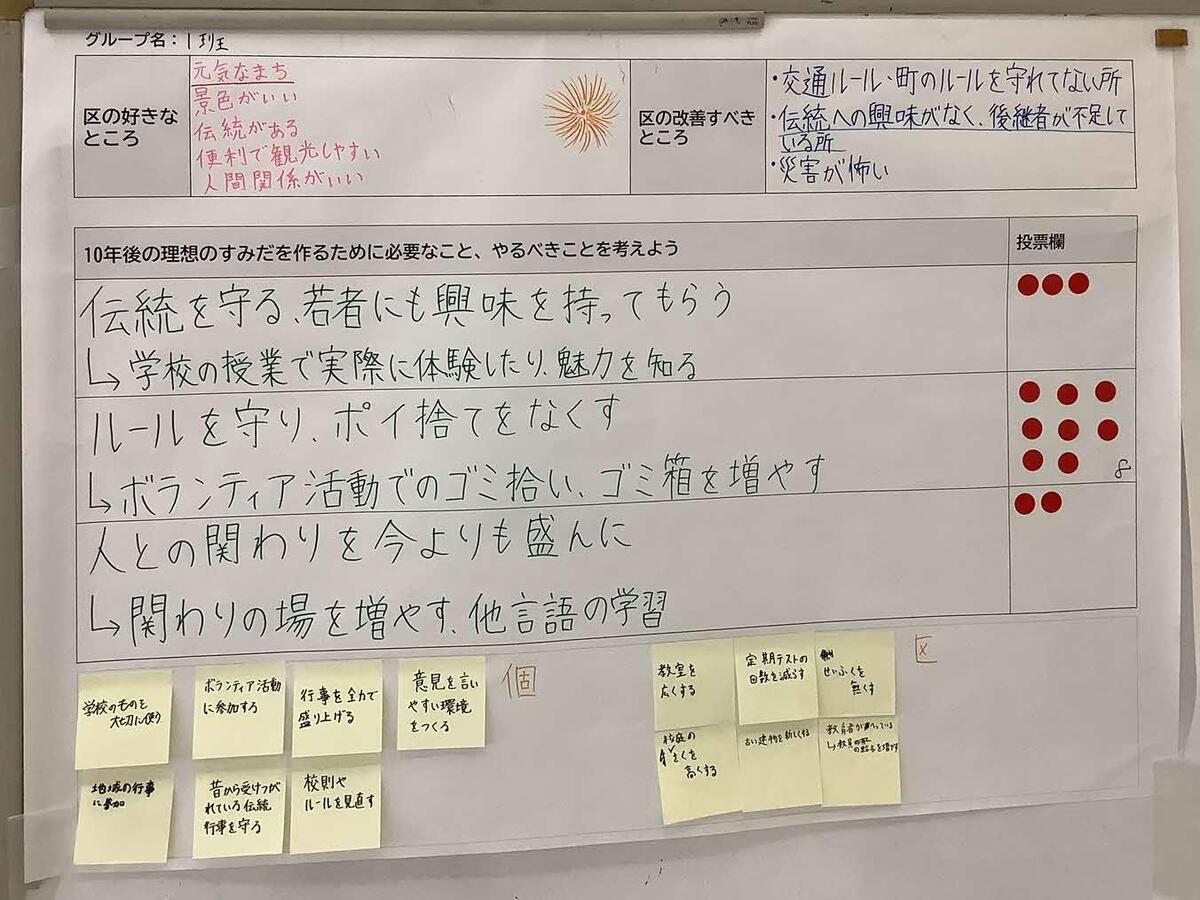 グループ名：1班
区の好きな
ところ
元気なまち
景色がいい
伝統がある
便利で観光しやすい
人間関係がいい
区の改善すべき
ところ
・交通ルール・町のルールを守れてない所
・伝統への興味がなく、後継者が不足して
いる所
・災害が怖い
10年後の理想のすみだを作るために必要なこと、やるべきことを考えよう
投票欄
伝統を守る、若者にも興味を持ってもらう
↳学校の授業で実際に体験したり、魅力を知る
ルールを守り、ポイ捨てをなくす
↳ボランティア活動でのゴミ拾い、ゴミ箱を増やす
8
人との関わりを今よりも盛んに
↳関わりの場を増やす、他言語の学習
学校のものを
大切に使う
ボランティア活動
に参加する
行事を全力で
盛り上げる
意見を言い
やすい環境
をつくる
個
地域の行事
に参加
昔から受けつが
れている伝統
行事を守る
校則や
ルールを見直す
教室を
広くする
定期テストの
回数を減らす
せいふくを
無くす
区
校庭の
さくを
高くする
古い建物を新しくする
教育者が
↳教員の
を増やす